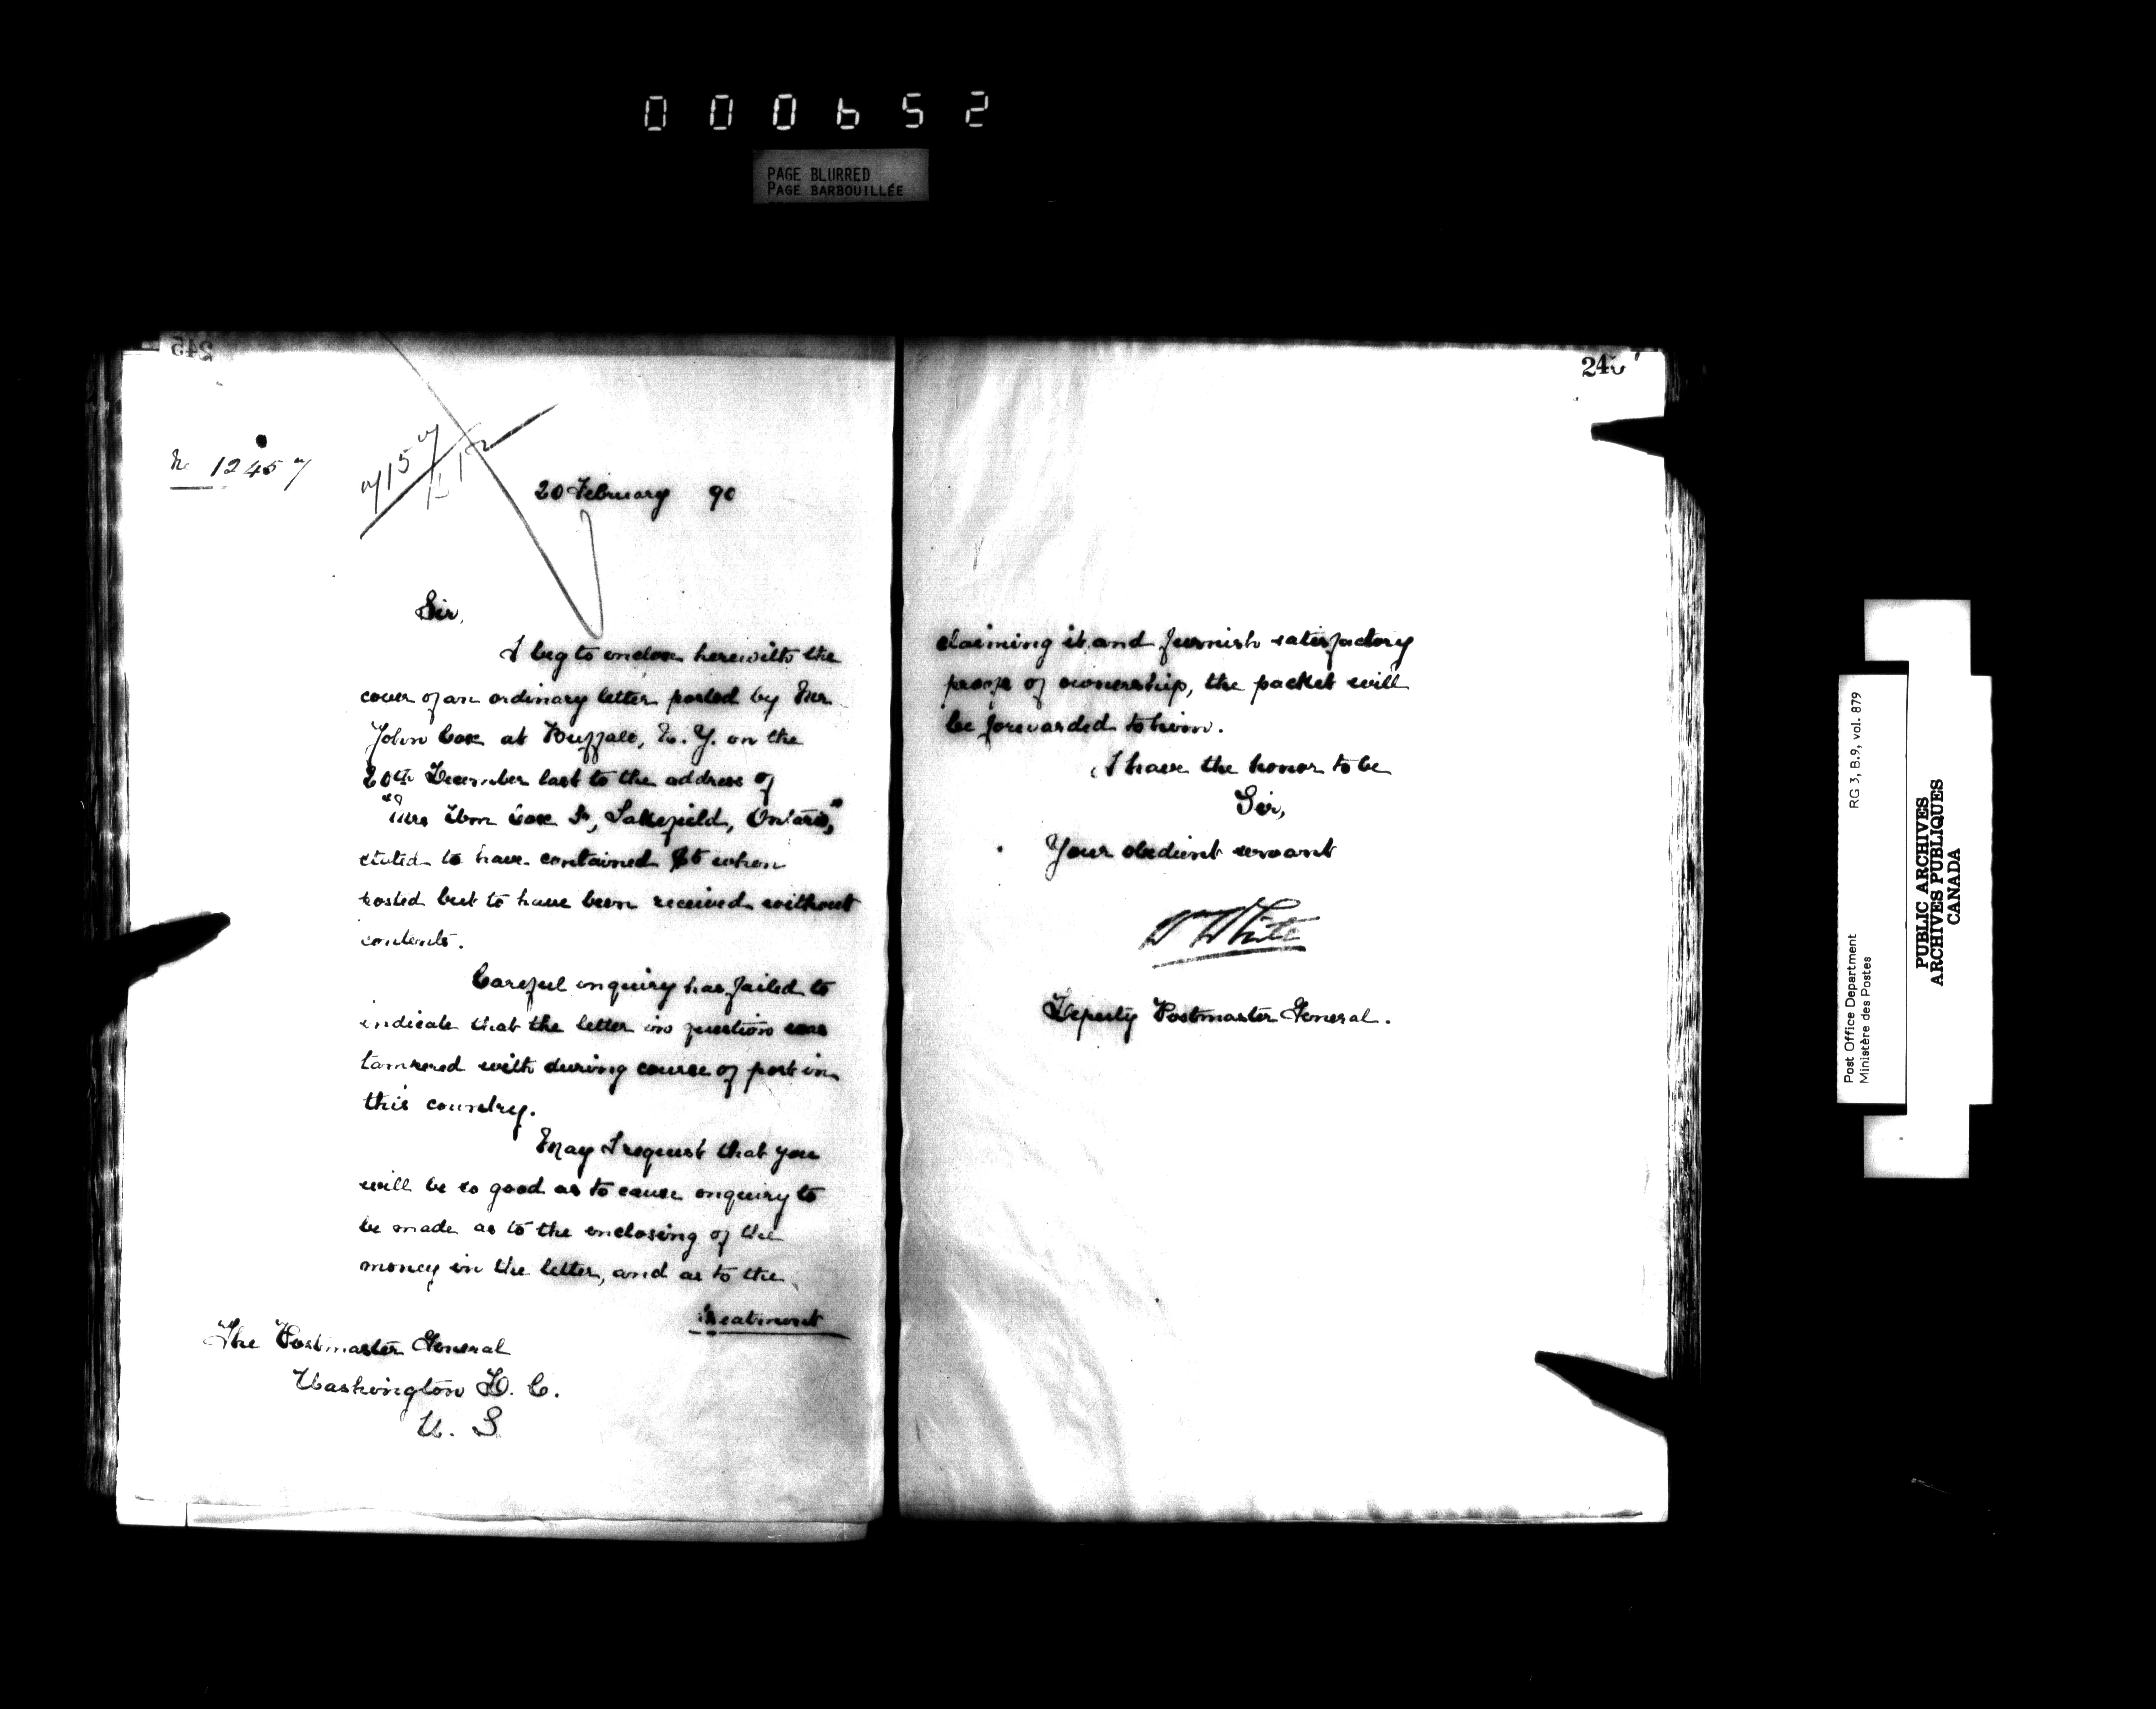 000652
PAGE BLURRED
PAGE BARBOUILLÉE
245
No 12457
20 February 90
Sir,
I beg to enclose herewith the
cover of an ordinary letter posted by Mr
John Cox at Buffalo, N. Y. on the
20th December last to the address of
"Mrs Wm Cox Sr, Lakefield, Ontario,"
stated to have contained $5 when
posted but to have been received without
contents.
Careful enquiry has failed to
indicate that the letter in question was
tampered with during course of post in
this country.
May I request that you
will be so good as to cause enquiry to
be made as to the enclosing of the
money in the letter, and as to the
treatment
The Postmaster General
Washington D. C.
U. S
claiming it and furnish satisfactory
proofs of ownership, the packet will
be forwarded to him.
I have the honor to be
Sir,
Your obedient servant
W White
Deputy Postmaster General.
Post Office Department RG 3, B.9, vol. 879
Ministère des Postes
PUBLIC ARCHIVES
ARCHIVES PUBLIQUES
CANADA